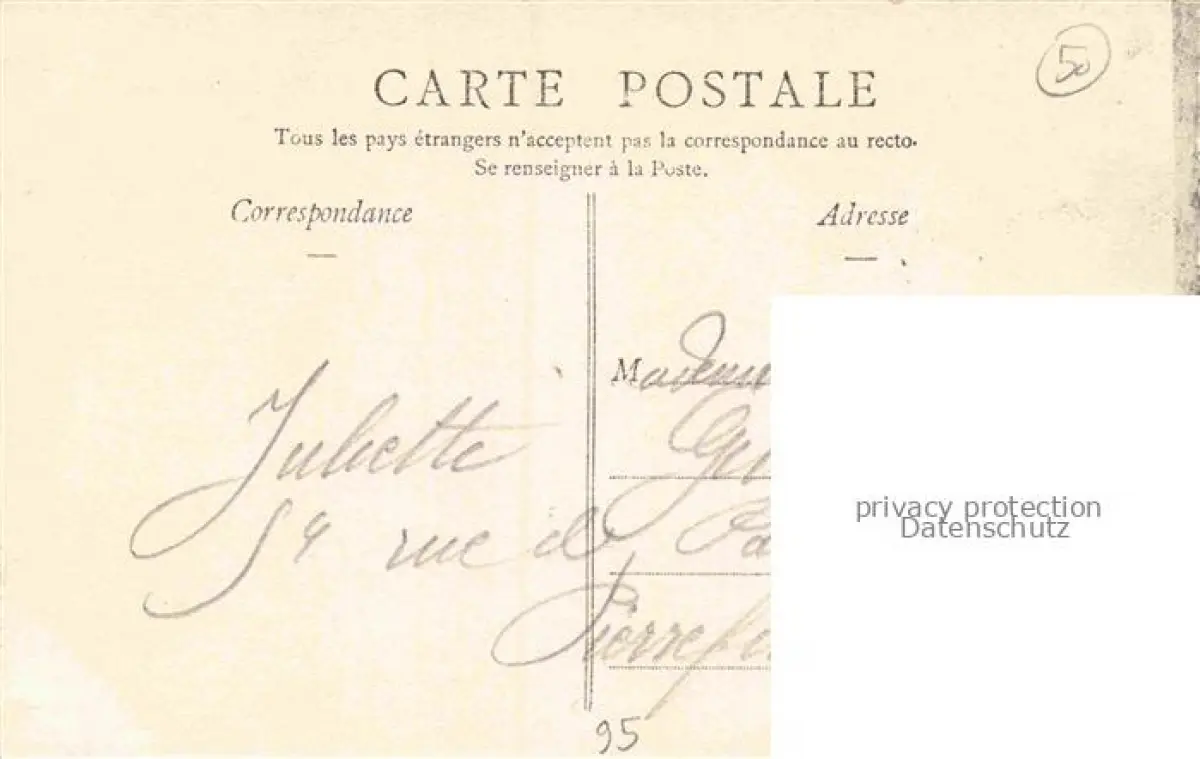 50
CARTE POSTALE
Tous les pays étrangers n'acceptent pas la correspondance au recto.
Se renseigner à la Poste.
Correspondance
Adresse
Juliette
54 rue de
95
privacy protection
Datenschutz